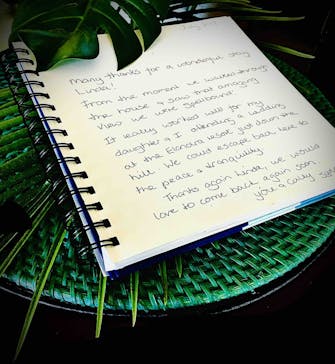 Many thanks for a wonderful stay
Linda!
From the moment we walked through
the house & saw that amazing
view we were spellbound.
It really worked well for my
daughter & I attending a wedding
at the Elanora just down the
hill. We could escape back here to
the peace & tranquility.
Thanks again Linda, we would
love to come back again soon.